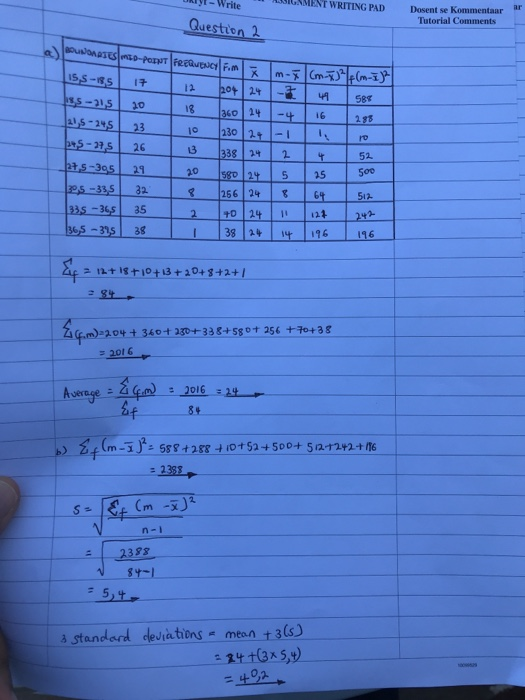 Skryf - Write
ASSIGNMENT WRITING PAD
Dosent se Kommentaar
Tutorial Comments
Question 2
a)
BOUNDARIES MID-POINT FREQUENCY F.m x̄ m-x̄ (m-x̄)² f(m-x̄)²
15,5-18,5 17 12 204 24 -7 49 588
18,5-21,5 20 18 360 24 -4 16 288
21,5-24,5 23 10 230 24 -1 1 10
24,5-27,5 26 13 338 24 2 4 52
27,5-30,5 29 20 580 24 5 25 500
30,5-33,5 32 8 256 24 8 64 512
33,5-36,5 35 2 70 24 11 121 242
36,5-39,5 38 1 38 24 14 196 196
Σf = 12+18+10+13+20+8+2+1
= 84
Σ(f.m)=204+360+230+338+580+256+70+38
= 2016
Average = Σ(f.m) = 2016 = 24
Σf 84
b) Σf(m-x̄)² = 588+288+10+52+500+512+242+196
= 2388
S = √Σf(m-x̄)²
n-1
= √2388
84-1
= 5,4
3 standard deviations = mean +3(s)
= 24+(3×5,4)
= 40,2